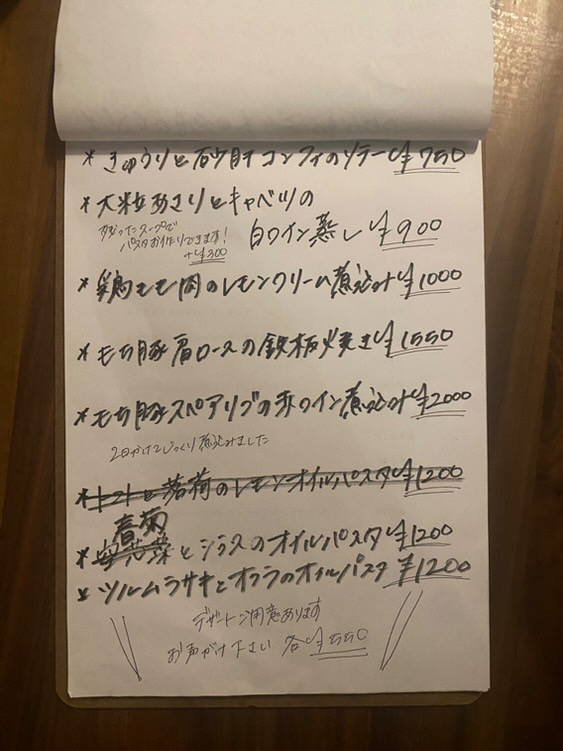 * きゅうりと砂肝コンフィのソテー ¥750
* 大粒あさりとキャベツの
白ワイン蒸し ¥900
残ったスープで
パスタお作りできます!
+¥300
* 鶏モモ肉のレモンクリーム煮込み ¥1000
* もち豚肩ロースの鉄板焼き ¥1550
* もち豚スペアリブの赤ワイン煮込み ¥2000
2日かけてじっくり煮込みました
* トマトと茗荷のレモンオイルパスタ ¥1200
春菊
* とシラスのオイルパスタ ¥1200
* ツルムラサキとオクラのオイルパスタ ¥1200
デザートご用意あります
お声がけ下さい 各¥550